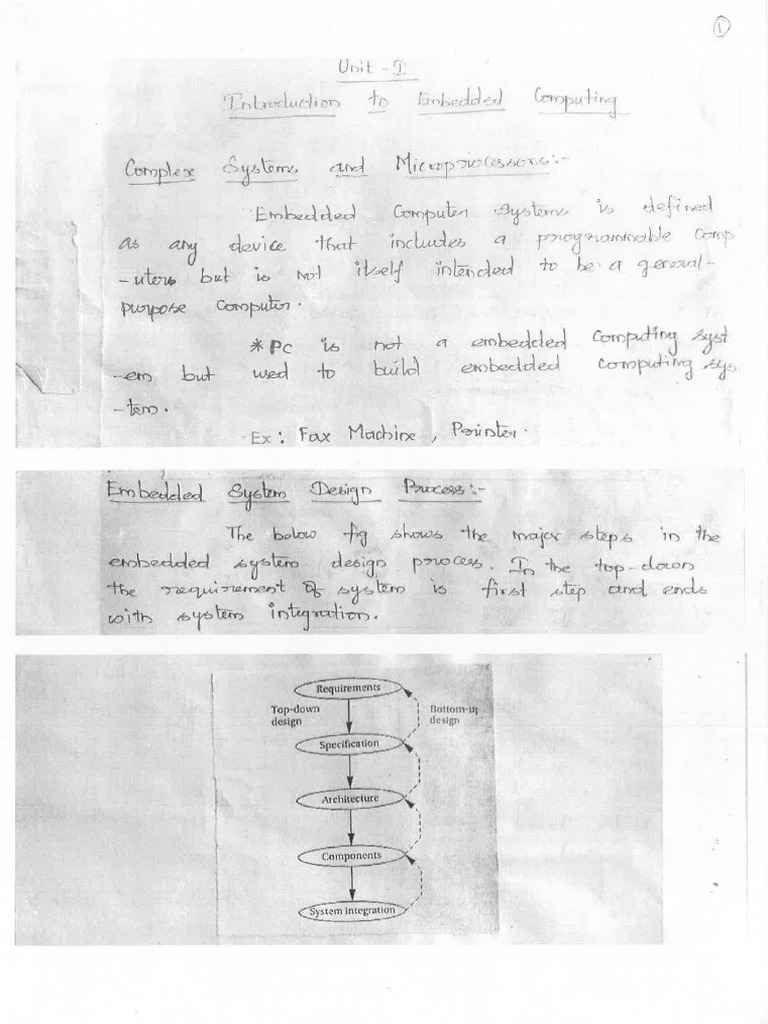 1
Unit - I
Introduction to Embedded Computing
Complex Systems and Microprocessors:-
Embedded Computer Systems is defined
as any device that includes a programmable Comp
-uters but is not itself intended to be a general-
purpose Computer.
* PC is not a embedded Computing syst
-em but used to build embedded Computing sys
-tem.
Ex: Fax Machine, Printer.
Embedded System Design Process:-
The below fig shows the major steps in the
embedded system design process. In the top-down
the requirement of system is first step and ends
with system integration.
Requirements
Top-down
design
Bottom-up
design
Specification
Architecture
Components
System integration